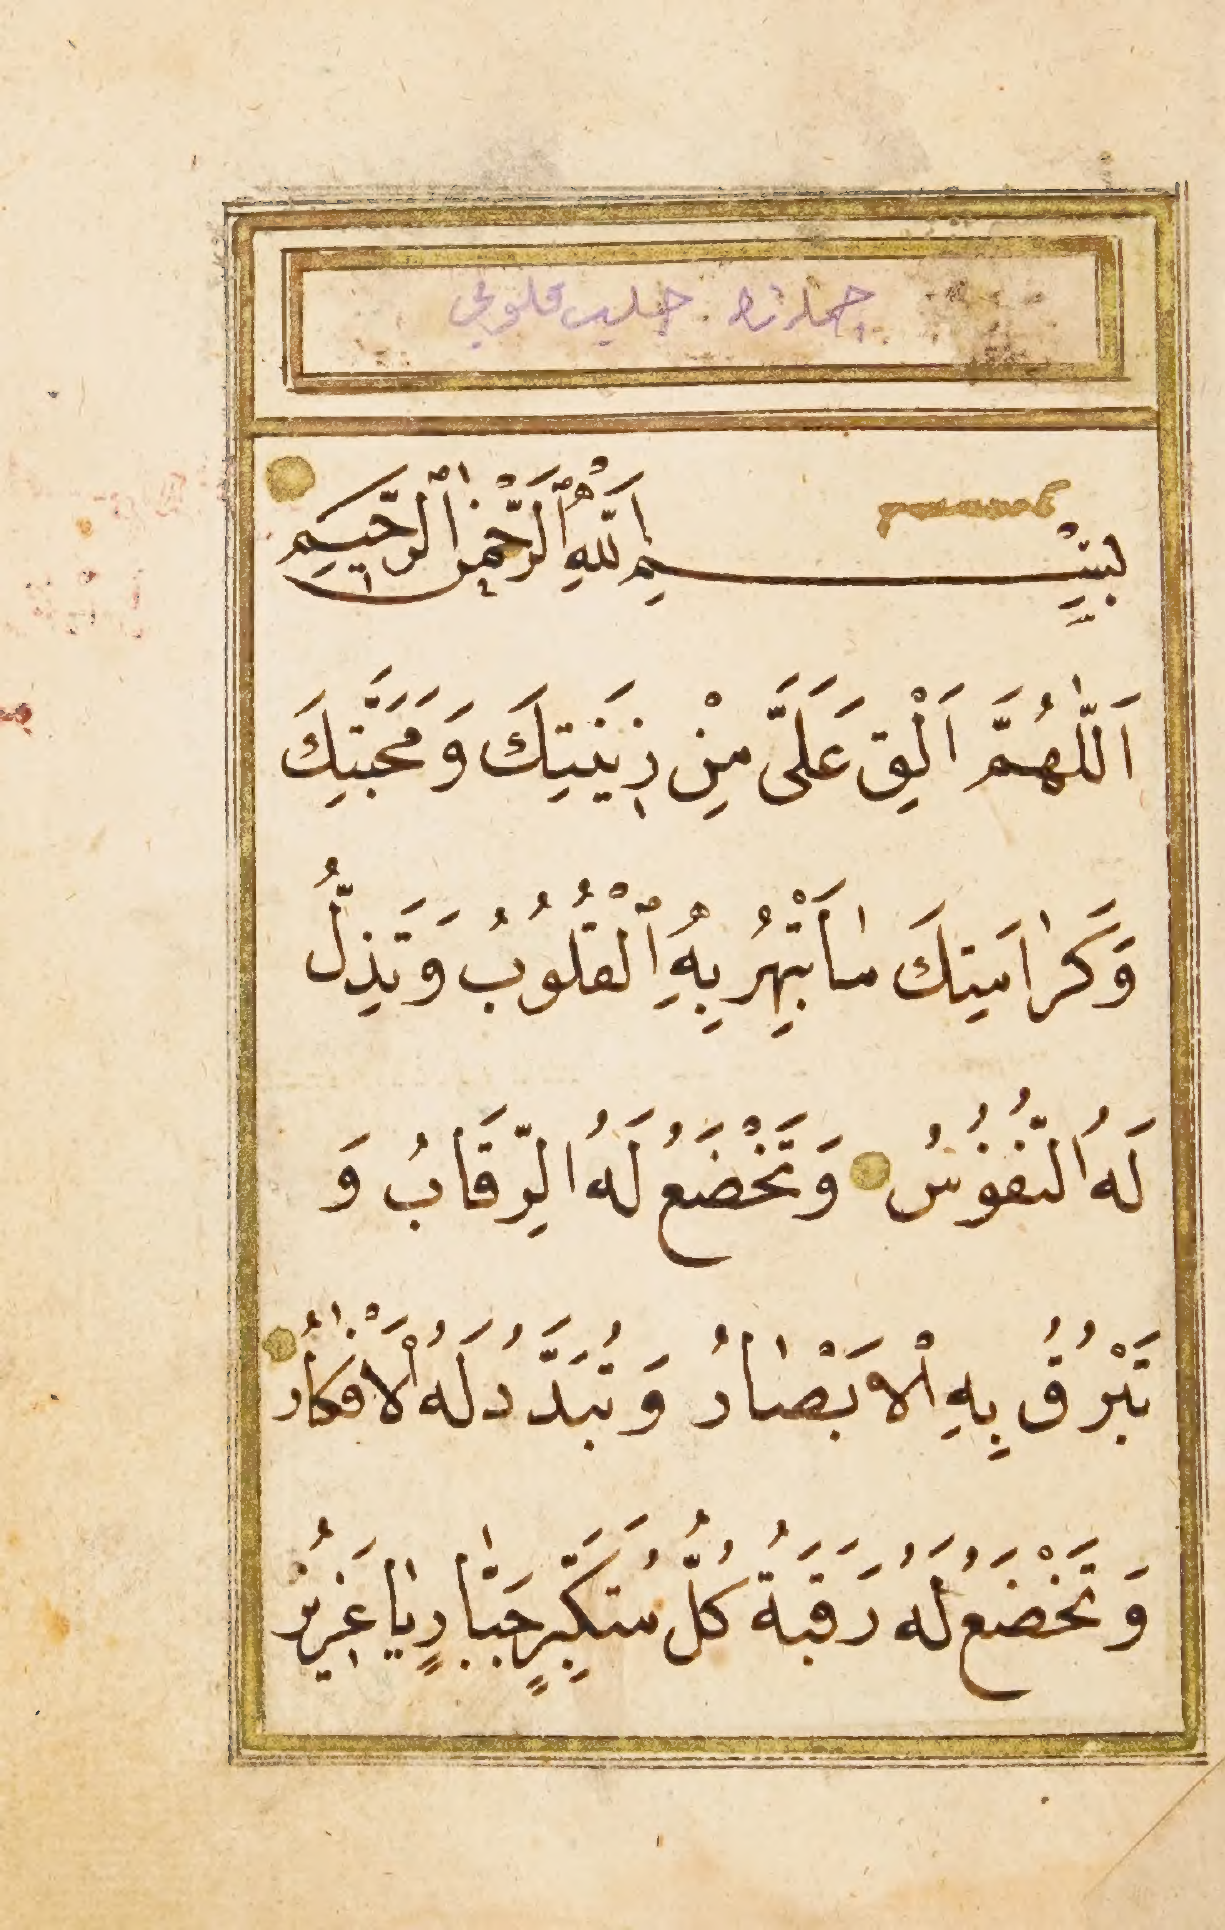 جلب قلوبى
بِسْمِ اللّٰهِ الرَّحْمٰنِ الرَّحِيمِ
اَللّٰهُمَّ اَلْقِ عَلَىَّ مِنْ زِينَتِكَ وَمَحَبَّتِكَ
وَكَرٰامَتِكَ مٰا تَبْهِرُ بِهِ الْقُلُوبُ وَتَذِلُّ
لَهُ النُّفُوسُ وَتَخْضَعُ لَهُ الرِّقَابُ وَ
تَبْرُقُ بِهِ الْاَبْصٰارُ وَتُبَدَّدُ لَهُ الْاَفْكٰارُ
وَتَخْضَعُ لَهُ رَقَبَةُ كُلُّ مُتَكَبِّرٍ جَبّٰارٍ يٰا عَزِيزُ